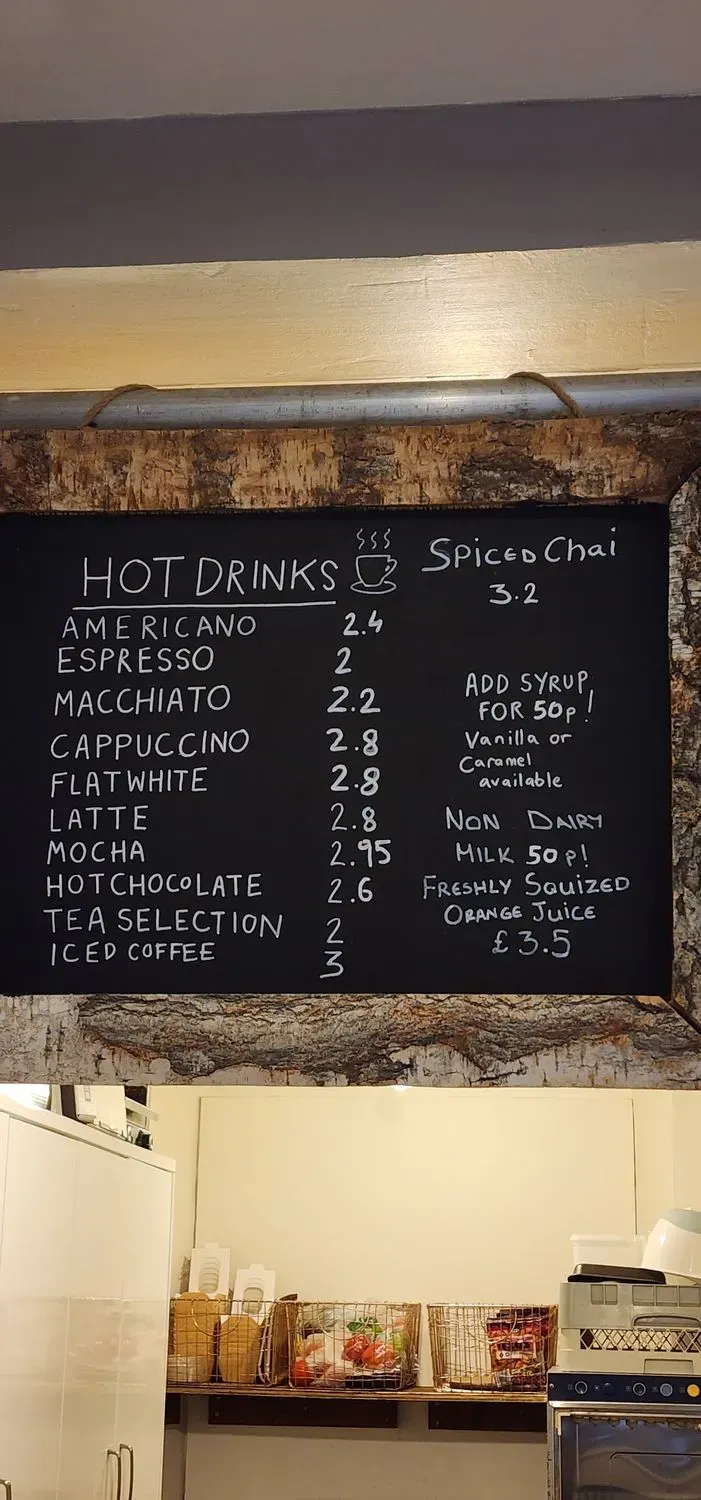 HOT DRINKS
AMERICANO 2.4
ESPRESSO 2
MACCHIATO 2.2
CAPPUCCINO 2.8
FLAT WHITE 2.8
LATTE 2.8
MOCHA 2.95
HOT CHOCOLATE 2.6
TEA SELECTION 2
ICED COFFEE 3
Spiced Chai
3.2
ADD SYRUP
FOR 50p!
Vanilla or
Caramel
available
NON DAIRY
MILK 50p!
FRESHLY SQUIZED
ORANGE JUICE
£3.5